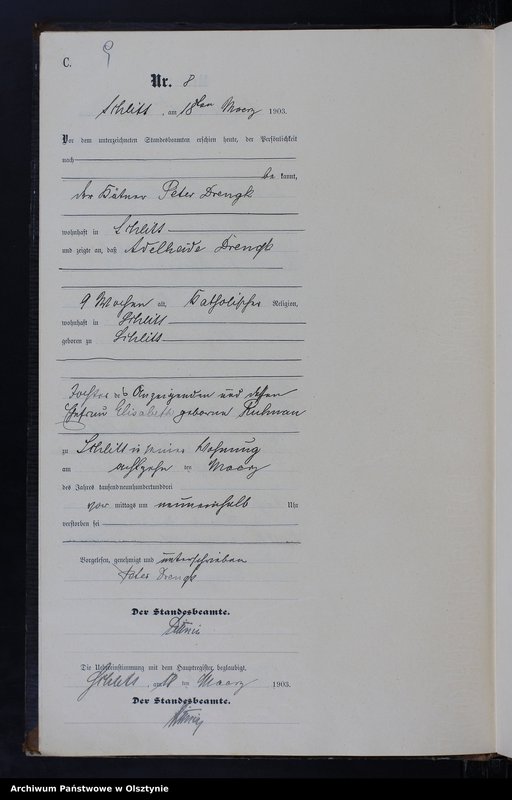 C. 9
Nr. 8
Schlitt, am 18ten Maerz 1903.
Vor dem unterzeichneten Standesbeamten erschien heute, der Persönlichkeit
nach
be kannt,
der Kätner Peter Drengk
wohnhaft in Schlitt
und zeigte an, daß Adelheide Drengk
9 Wochen alt, Katholischer Religion,
wohnhaft in Schlitt
geboren zu Schlitt
Tochter des Anzeigenden und dessen
Ehefrau Elisabeth geborene Ruhnau
zu Schlitt in seiner Wohnung
am achtzehn ten Maerz
des Jahres tausendneunhundertunddrei
vor mittags um neuneinhalb Uhr
verstorben sei
Vorgelesen, genehmigt und unterschrieben
Peter Drengk
Der Standesbeamte.
Die Uebereinstimmung mit dem Hauptregister beglaubigt.
Schlitt, am 18 ten Maerz 1903.
Der Standesbeamte.
Archiwum Państwowe w Olsztynie